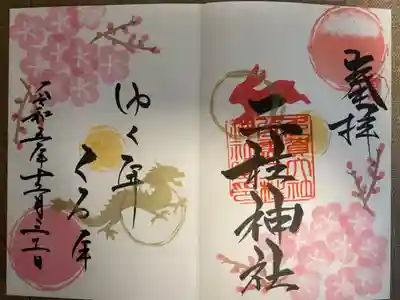 奉拝
二柱神社
ゆく年
くる年
令和五年十二月三十一日